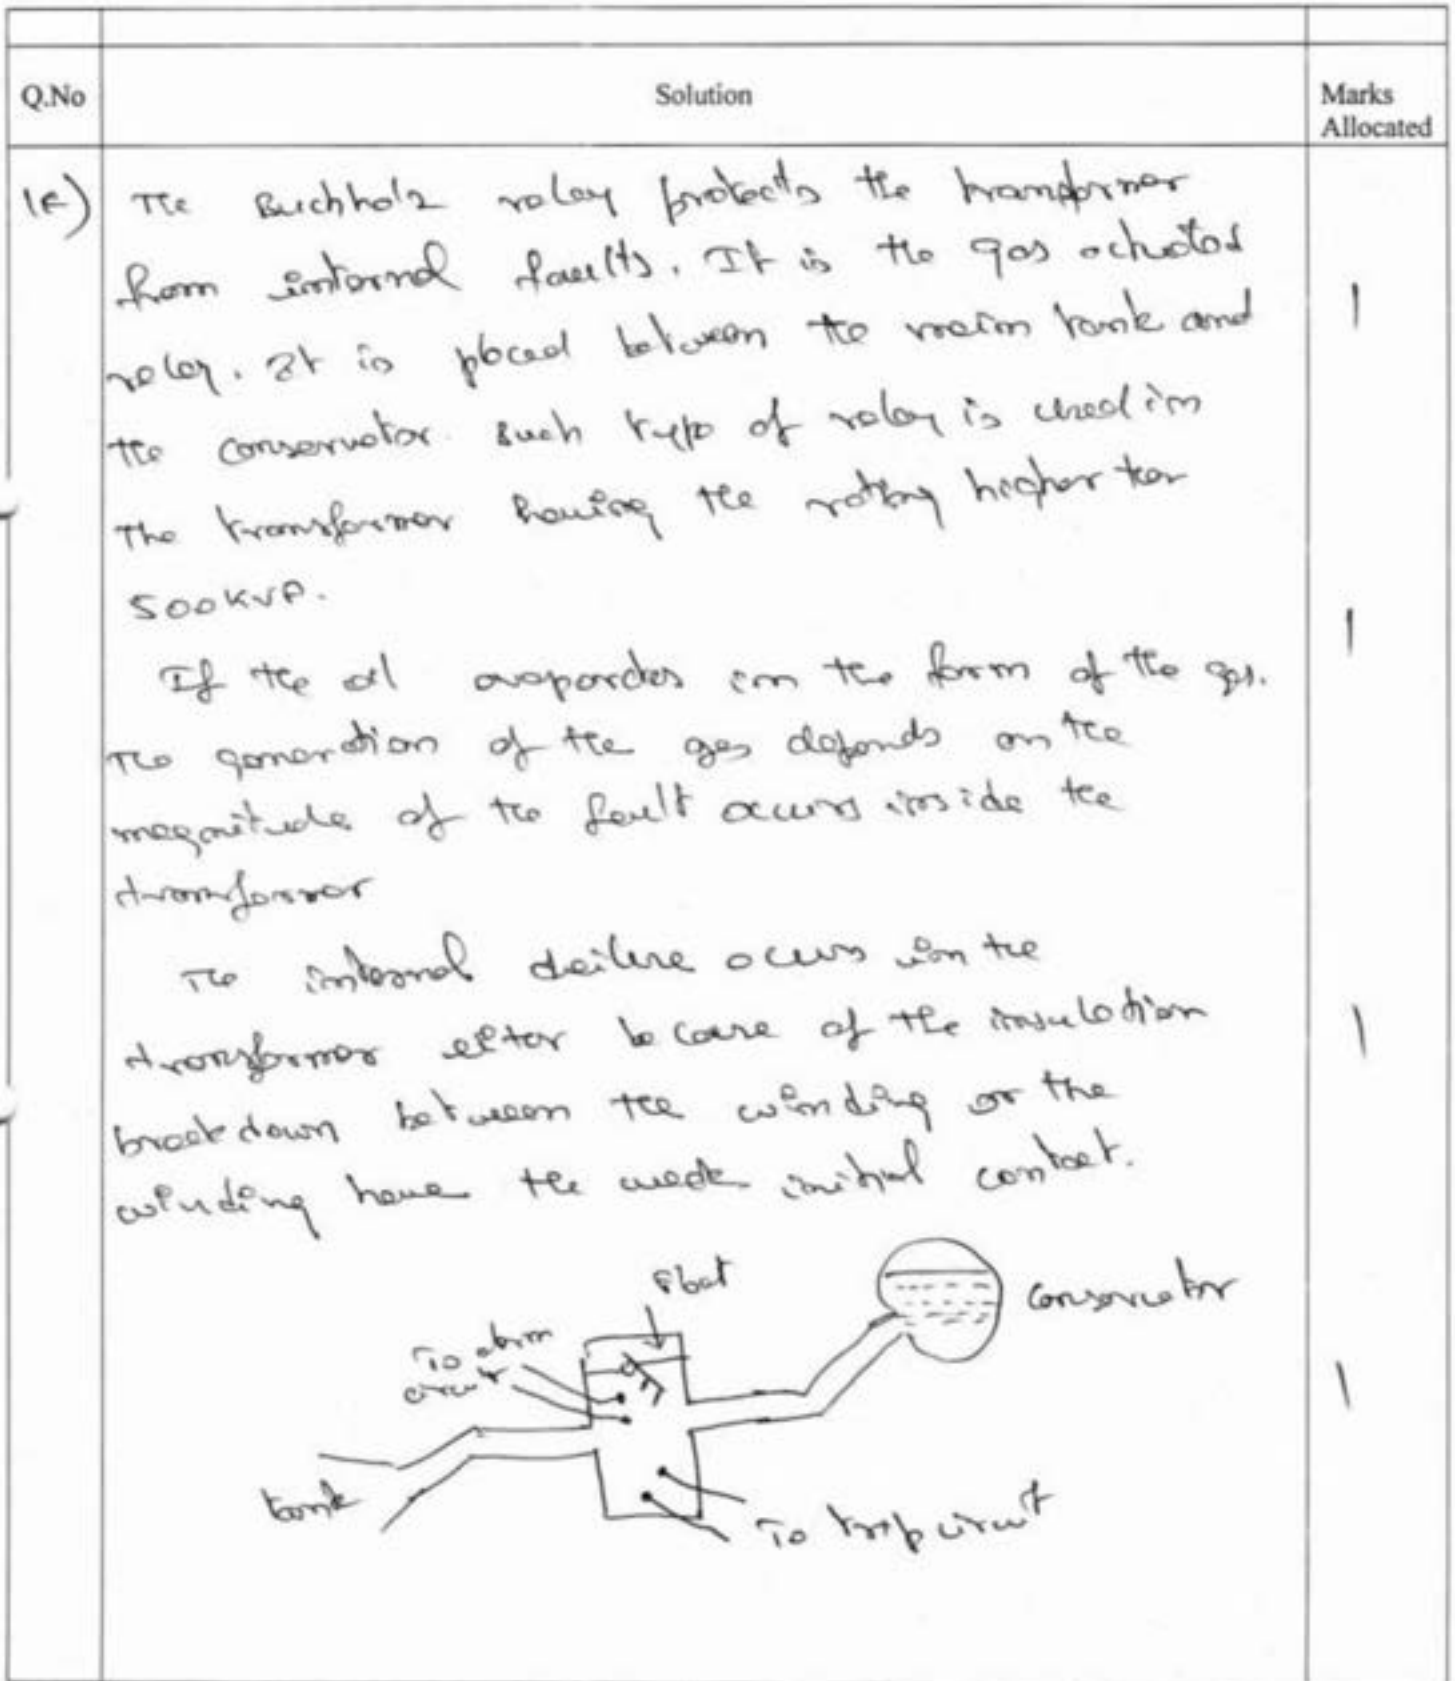 Q.No Solution Marks Allocated
1c) The Buchholz relay protects the transformer
from internal faults. It is the gas actuated 1
relay. It is placed between the main tank and
the conservator. Such type of relay is used in
The transformer having the rating higher than
500KVA. 1
If the oil evaporates in the form of the gas.
The generation of the gas depends on the
magnitude of the fault occurs inside the
transformer
The internal failure occurs in the
transformer either because of the insulation 1
breakdown between the winding or the
winding have the weak initial contact.
Float
conservator
To alarm
circuit 1
tank
To trip circuit